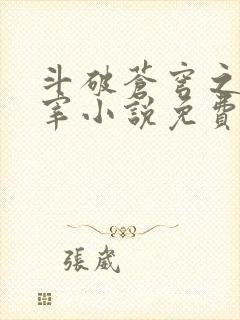 斗破蒼穹之
宰小說免費
張嵗